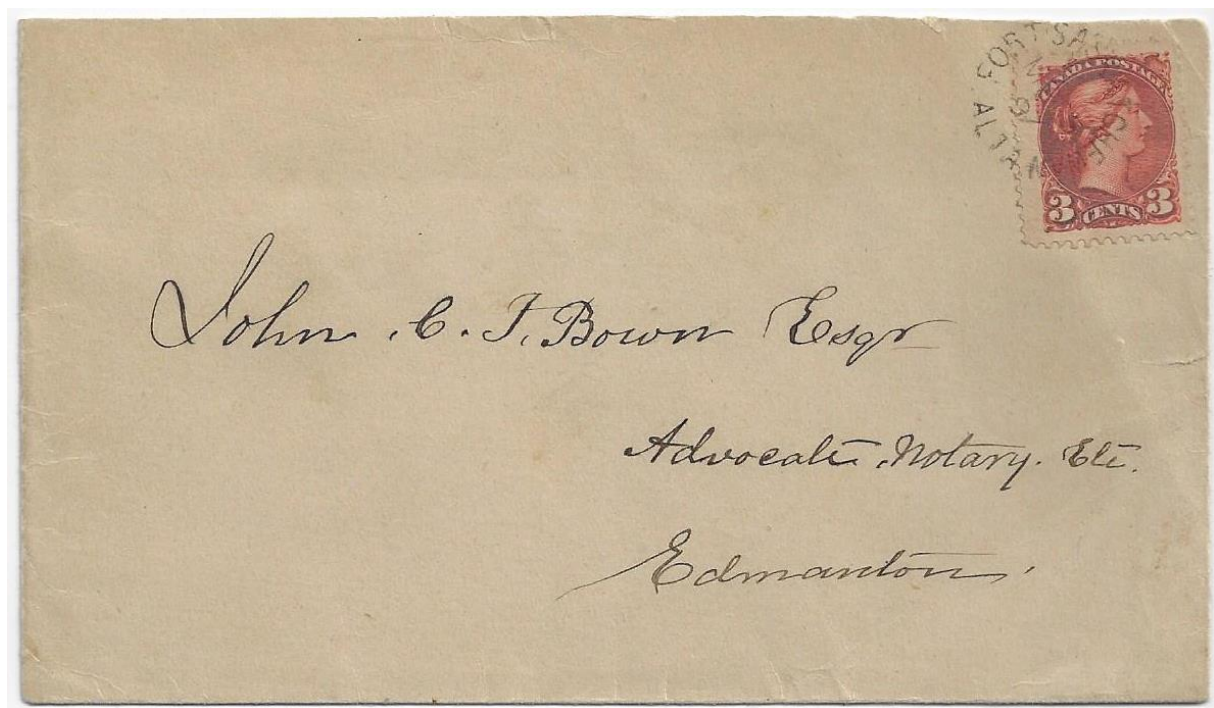 CANADA POSTAGE
3 CENTS 3
John C. F. Bown Esqr
Advocate, Notary. Etc.
Edmanton.